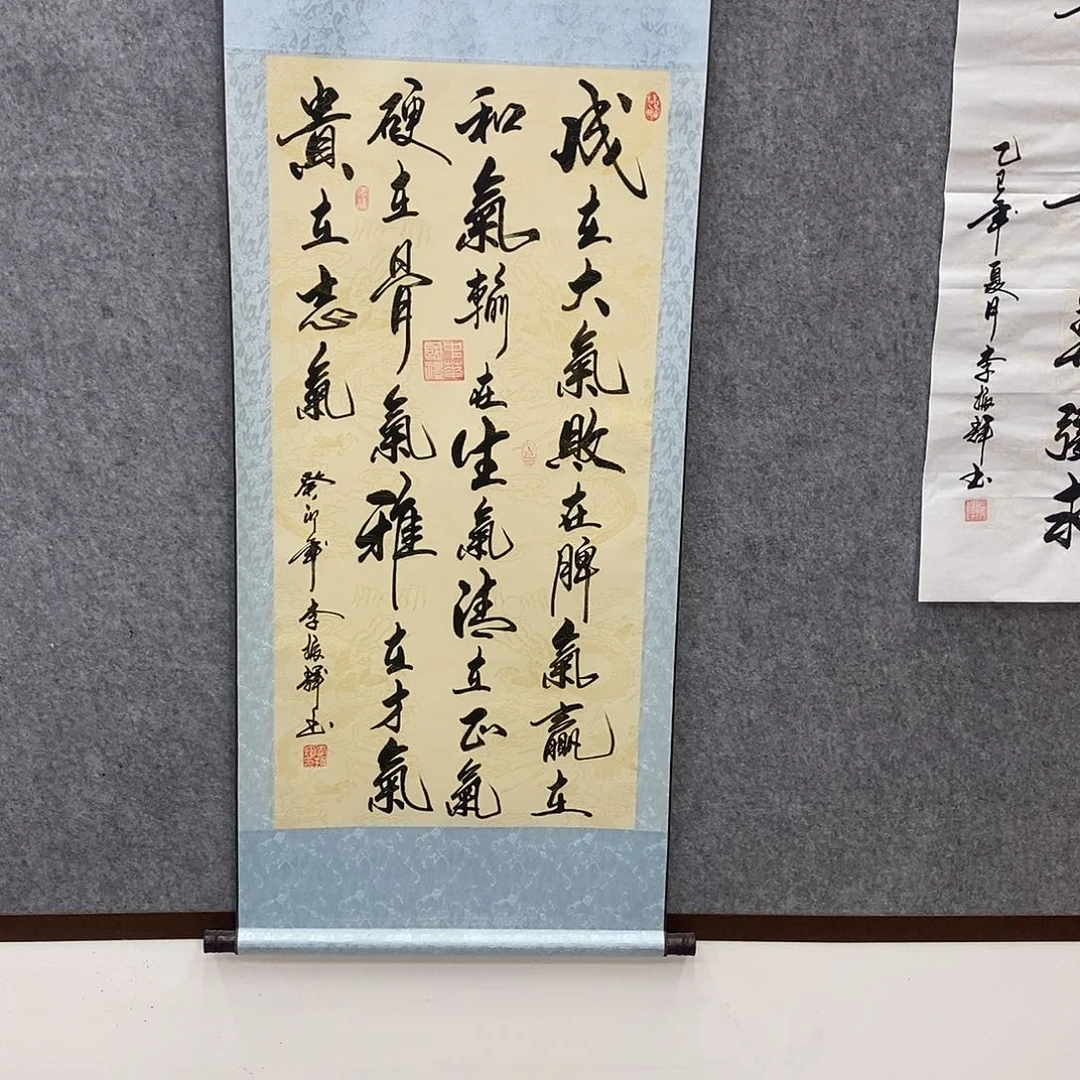 成在大氣敗在脾氣贏在
和氣輸在生氣清在正氣
硬在骨氣雅在才氣
貴在志氣
癸卯年李振輝书
乙巳年夏月李振輝书